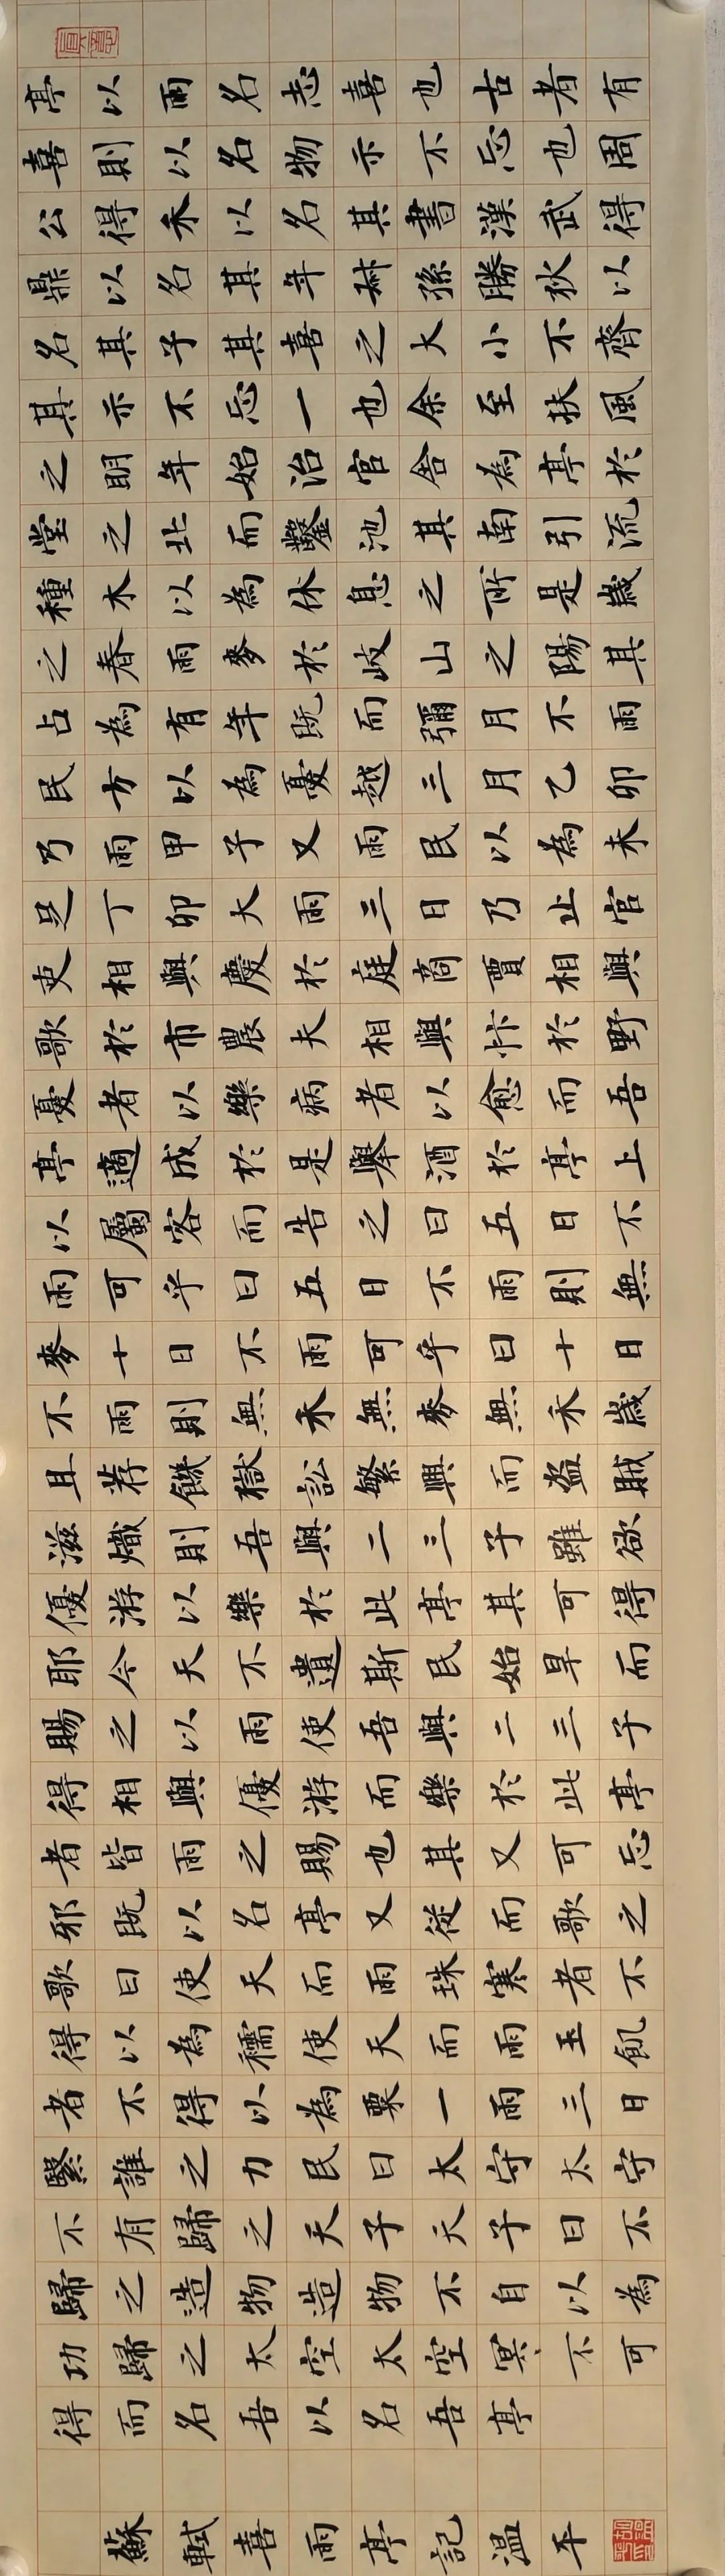 亭以雨名志喜也古者有
喜則以名物示不忘也周
公得禾以名其書漢武得
鼎以名其年叔孫勝狄以
名其子其喜之大小不齊
其示不忘一也余至扶風
之明年始治官舍為亭於
堂之北而鑿池其南引流
種木以為休息之所是歲
之春雨麥於岐山之陽其
占為有年既而彌月不雨
民方以為憂越三月乙卯
乃雨甲子又雨民以為未
足丁卯大雨三日乃止官
吏相與慶於庭商賈相與
歌於市農夫相與忭於野
憂者以樂病者以愈而吾
亭適成於是舉酒於亭上
以屬客而告之曰五日不
雨可乎曰五日不雨則無
麥十日不雨可乎曰十日
不雨則無禾無麥無禾歲
且荐饑獄訟繁興而盜賊
滋熾則吾與二三子雖欲
優游以樂於此亭其可得
耶今天不遺斯民始旱而
賜之以雨使吾與二三子
得相與優游而樂於此亭
者皆雨之賜也其又可忘
邪既以名亭又從而歌之
歌曰使天而雨珠寒者不
得以為襦使天而雨玉飢
者不得以為粟一雨三日
繄誰之力民曰太守太守
不有歸之天子天子曰不
歸之造物造物不自以為
功歸之太空太空冥、不可
得而名吾以名吾亭
蘇軾喜雨亭記溫平